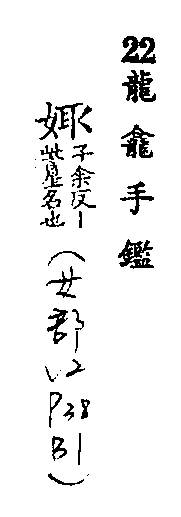 22龍龕手鑑
娵子余反丨
此星名也
(女部
V2
P38
B1)